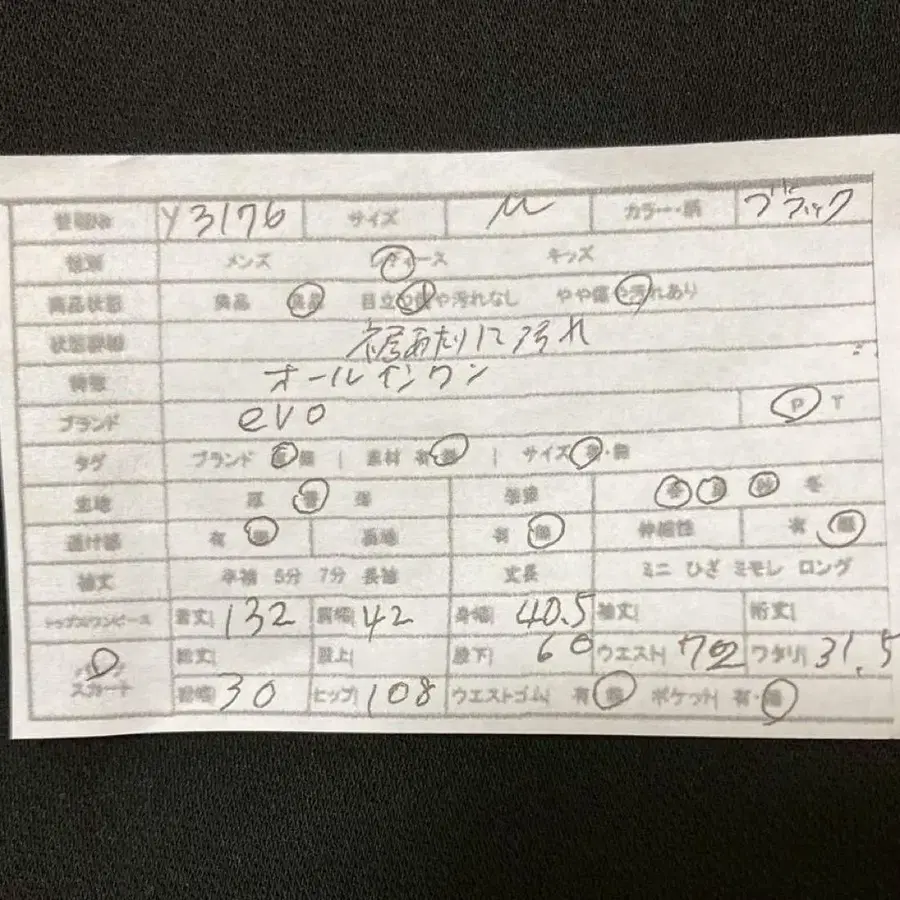 管理No Y3176 サイズ M カラー・柄 ブラック
性別 メンズ レディース キッズ
商品状態 美品 良品 目立つ傷や汚れなし やや傷や汚れあり
状態詳細 裾あたりに汚れ
特徴 オールインワン
ブランド evo P T
タグ ブランド 有 無 | 素材 有 無 | サイズ 有・無
生地 厚 普 薄 季節 春 夏 秋 冬
透け感 有 無 裏地 有 無 伸縮性 有 無
袖丈 半袖 5分 7分 長袖 丈長 ミニ ひざ ミモレ ロング
トップス/ワンピース 着丈 132 肩幅 42 身幅 40.5 袖丈 裄丈
パンツ スカート 総丈 股上 股下 60 ウエスト 72 ワタリ 31.5
裾幅 30 ヒップ 108 ウエストゴム 有 無 ポケット 有・無